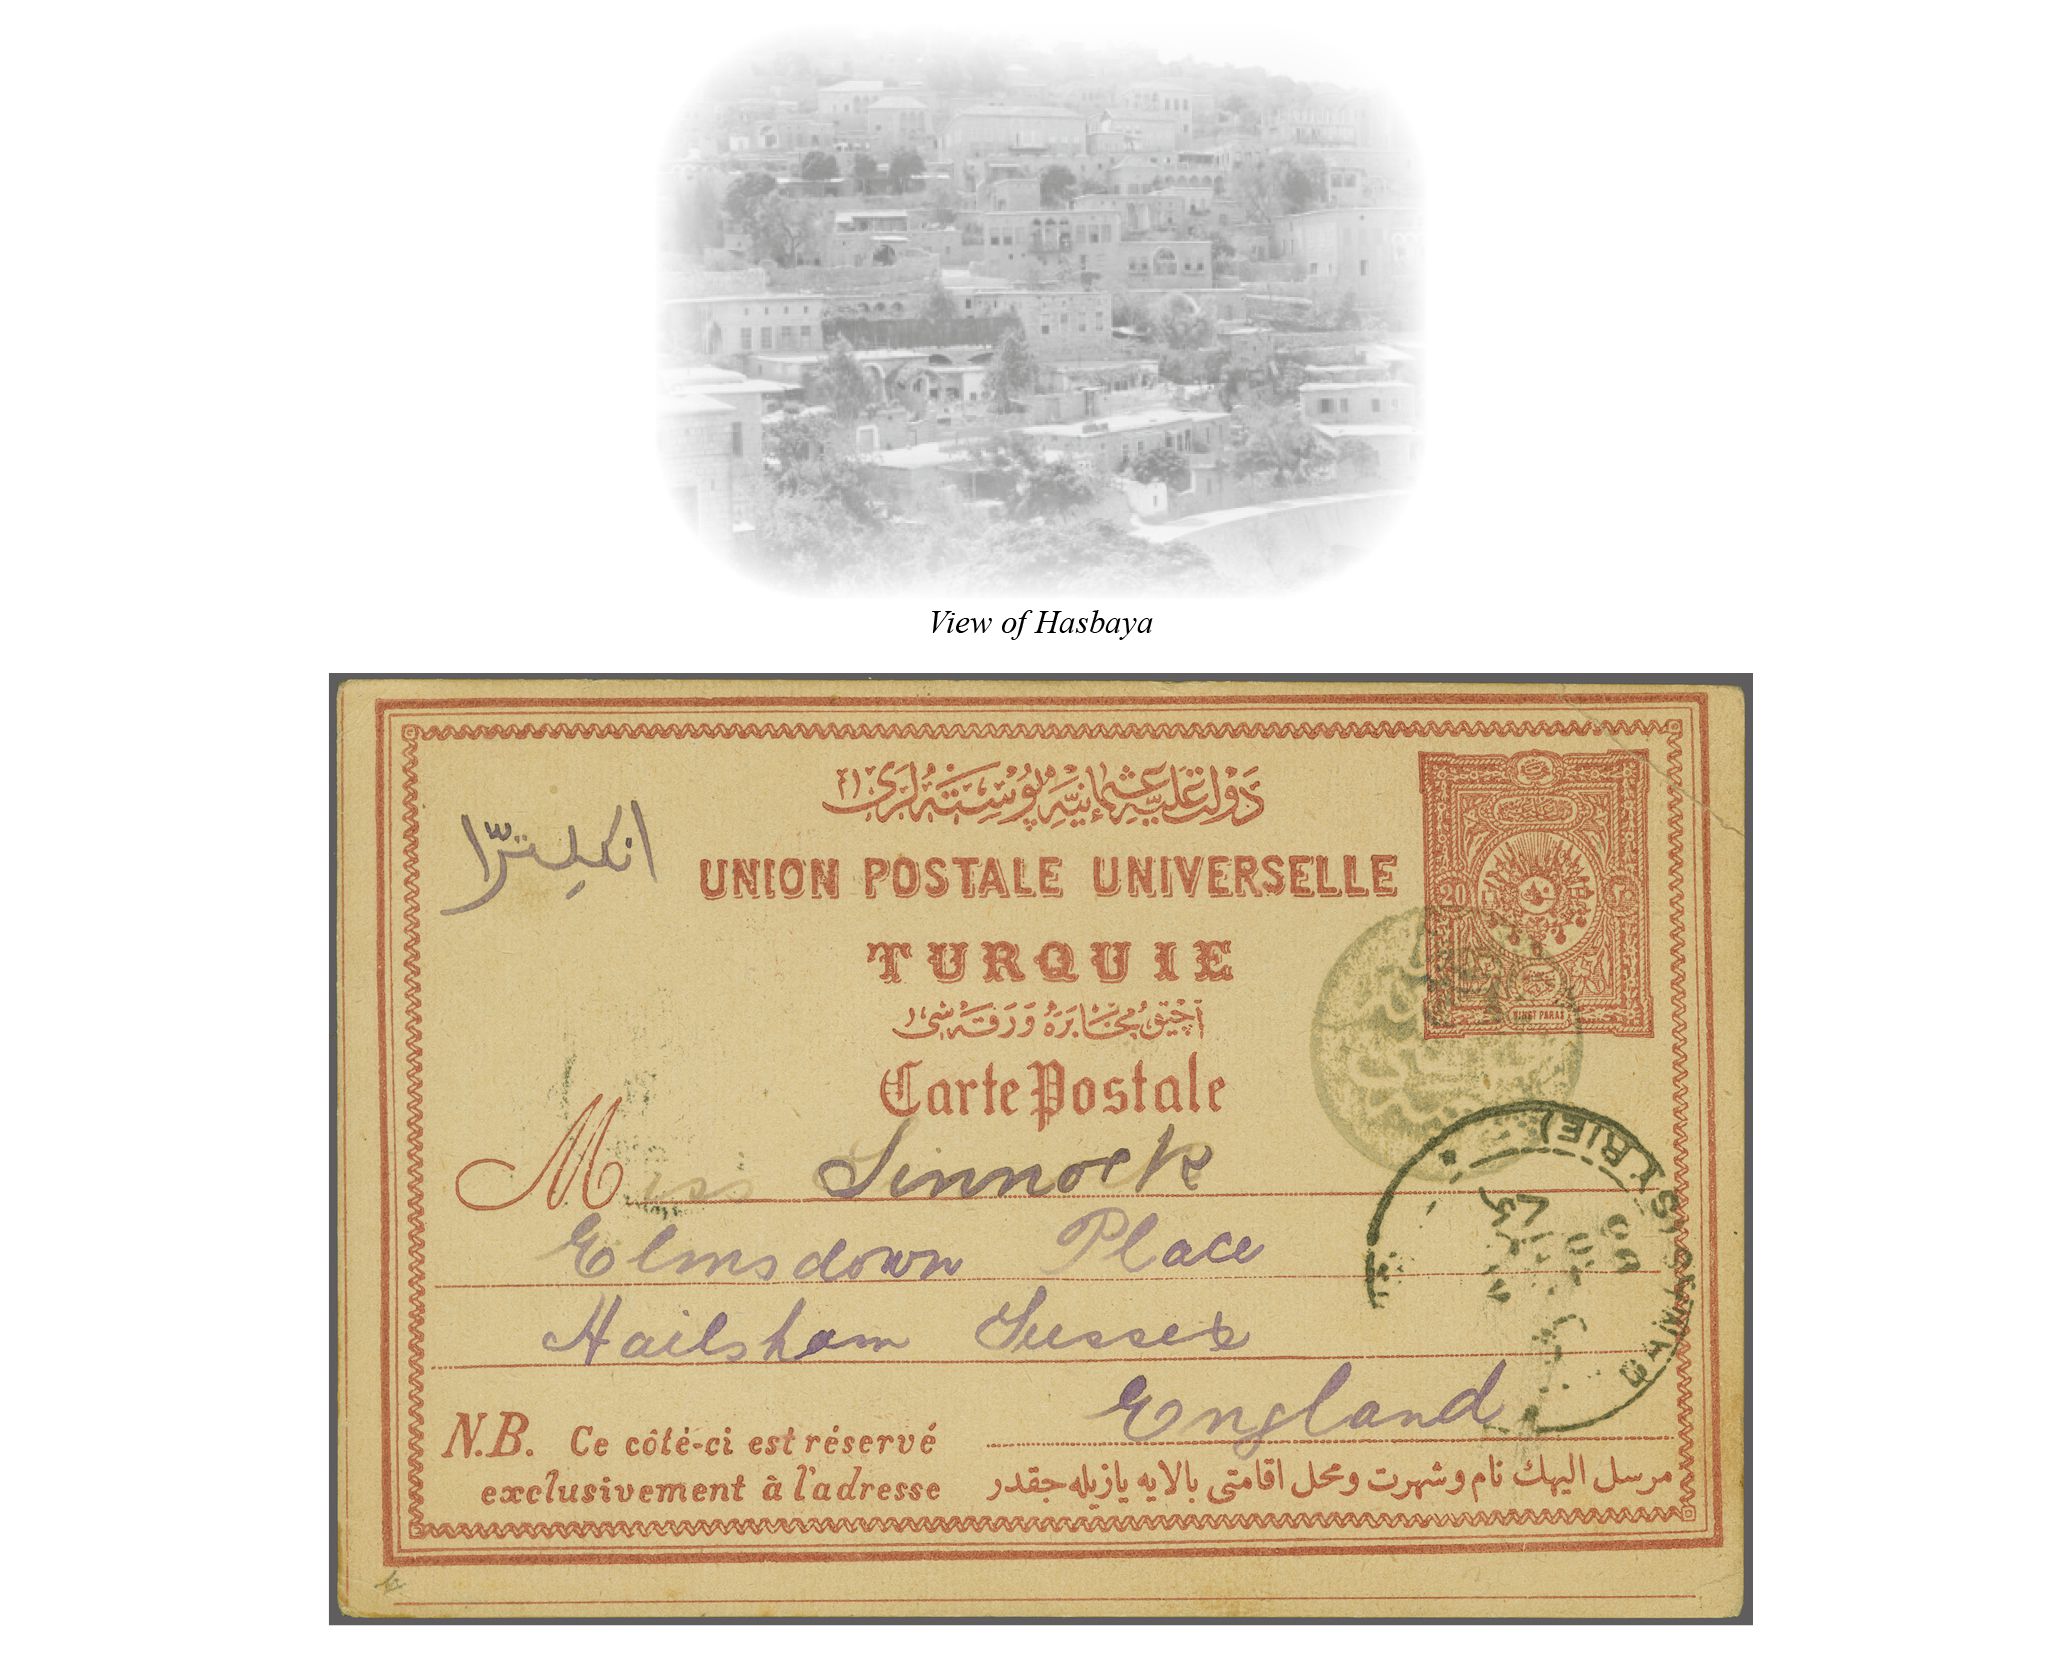 View of Hasbaya
دولت علیه عثمانیه پوسته لری
انكلترا
UNION POSTALE UNIVERSELLE
20 ٢٠
VINGT PARAS
TURQUIE
آچیق مخابره ورقه سی
Carte Postale
Miss Sinnock
Elmsdown Place
Hailsham Sussex
England
(SYRIE)
N.B. Ce côté-ci est réservé
exclusivement à l'adresse
مرسل الیهك نام وشهرت ومحل اقامتی بالایه یازیله جقدر